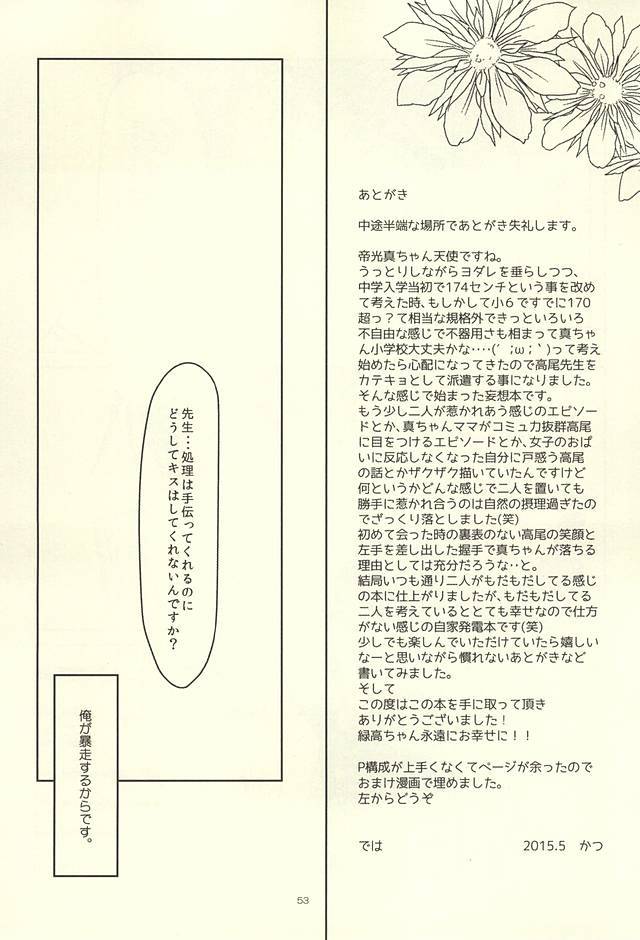 あとがき
中途半端な場所であとがき失礼します。
帝光真ちゃん天使ですね。
うっとりしながらヨダレを垂らしつつ、
中学入学当初で174センチという事を改め
て考えた時、もしかして小６ですでに170
超っ？て相当な規格外できっといろいろ
不自由な感じで不器用さも相まって真ちゃ
ん小学校大丈夫かな‥‥(´;ω;｀)って考え
始めたら心配になってきたので高尾先生を
カテキョとして派遣する事になりました。
そんな感じで始まった妄想本です。
もう少し二人が惹かれあう感じのエピソー
ドとか、真ちゃんママがコミュ力抜群高尾
に目をつけるエピソードとか、女子のおぱ
いに反応しなくなった自分に戸惑う高尾
の話とかザクザク描いていたんですけど
何というかどんな感じで二人を置いても
勝手に惹かれ合うのは自然の摂理過ぎたの
でざっくり落としました(笑)
初めて会った時の裏表のない高尾の笑顔と
左手を差し出した握手で真ちゃんが落ちる
理由としては充分だろうな‥と。
結局いつも通り二人がもだもだしてる感じ
の本に仕上がりましたが、もだもだしてる
二人を考えているととても幸せなので仕方
がない感じの自家発電本です(笑)
少しでも楽しんでいただけていたら嬉しい
なーと思いながら慣れないあとがきなど
書いてみました。
そして
この度はこの本を手に取って頂き
ありがとうございました！
緑高ちゃん永遠にお幸せに！！
P構成が上手くなくてページが余ったので
おまけ漫画で埋めました。
左からどうぞ
では　2015.5　かつ
先生…処理は手伝ってくれるのに
どうしてキスはしてくれないんですか？
俺が暴走するからです。
53